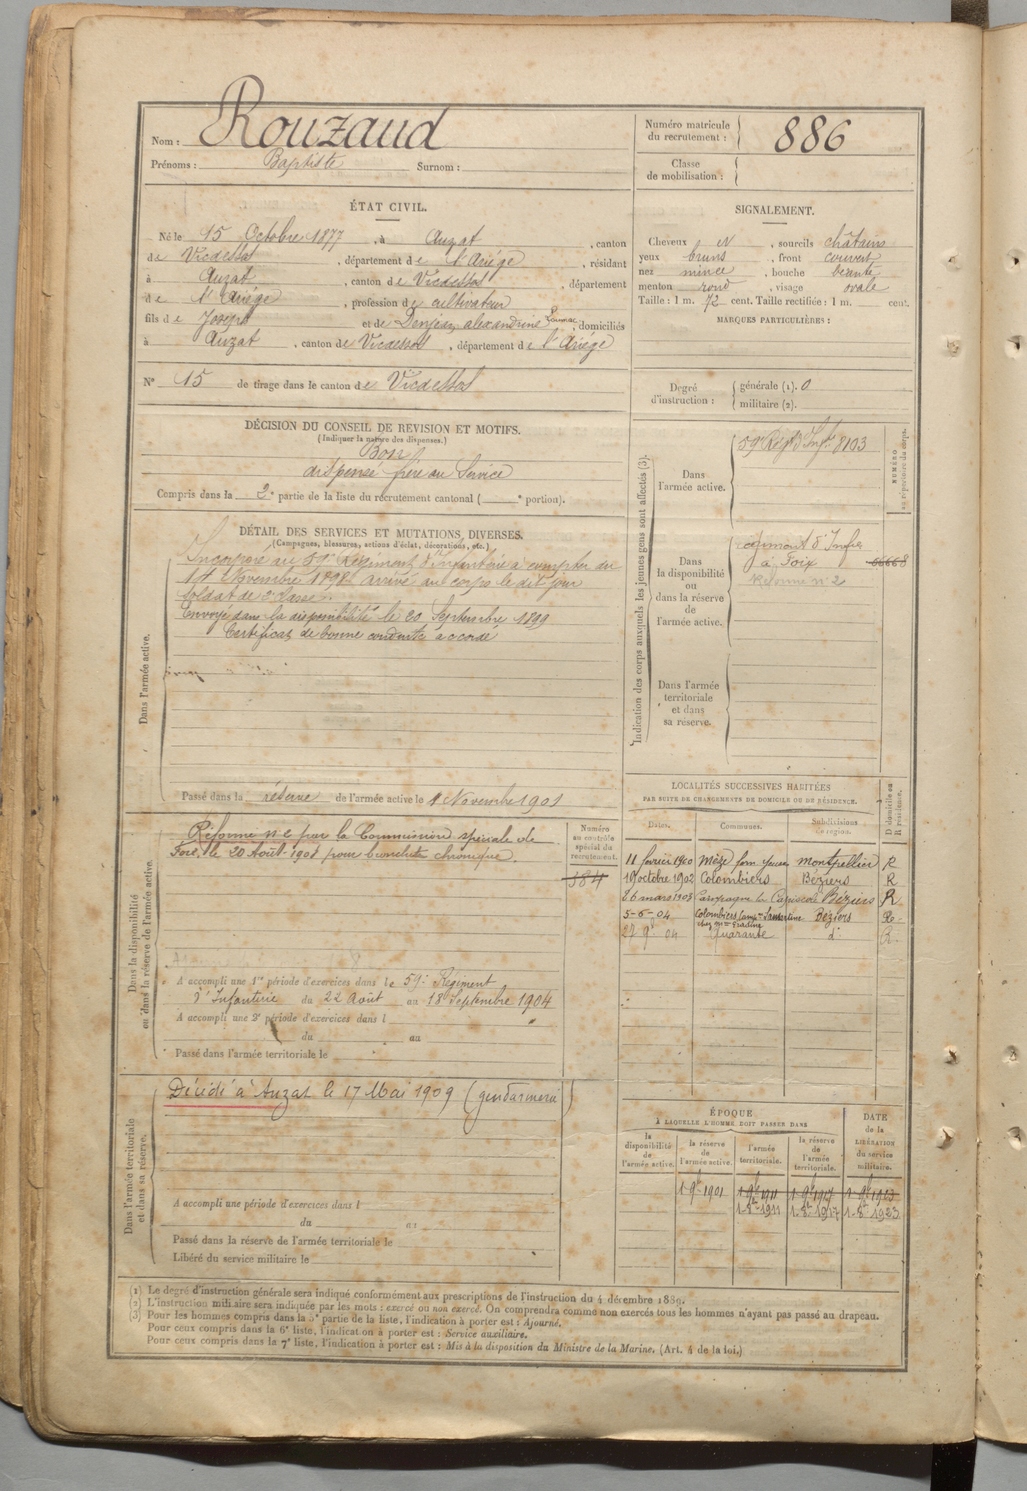 Nom : Rouzaud
Prénoms : Baptiste Surnom :
Numéro matricule du recrutement : 886
Classe de mobilisation :
ÉTAT CIVIL.
Né le 15 Octobre 1877, à Auzat, canton
de Vicdessos, département de l'Ariège, résidant
à Auzat, canton de Vicdessos, département
de l'Ariège, profession de cultivateur
fils de Joseph et de Denjean alexandrine, domiciliés
à Auzat, canton de Vicdessos, département de l'Ariège
N° 15 de tirage dans le canton de Vicdessos
SIGNALEMENT.
Cheveux N, sourcils châtains
yeux bruns, front couvert
nez mince, bouche béante
menton rond, visage ovale
Taille : 1 m. 72 cent. Taille rectifiée : 1 m. cent.
MARQUES PARTICULIÈRES :
Degré d'instruction : générale (1). 0
militaire (2).
DÉCISION DU CONSEIL DE REVISION ET MOTIFS.
(Indiquer la nature des dispenses.)
Bon
dispensé frère au Service
Compris dans la 2e partie de la liste du recrutement cantonal ( e portion).
DÉTAIL DES SERVICES ET MUTATIONS DIVERSES.
(Campagnes, blessures, actions d'éclat, décorations, etc.)
Dans l'armée active.
Incorporé au 59e Régiment d'infanterie à compter du
14 Novembre 1898 arrivé au corps le dit jour
soldat de 2e classe.
Envoyé dans la disponibilité le 20 Septembre 1899
Certificat de bonne conduite accordé
Passé dans la réserve de l'armée active le 1 Novembre 1901
Indication des corps auxquels les jeunes gens sont affectés (3).
NUMÉRO au répertoire du corps.
Dans l'armée active.
59e Régt d'Infie 8103
Dans la disponibilité ou dans la réserve de l'armée active.
régiment d'Infie
à Foix
Réforme n° 2
Dans l'armée territoriale et dans sa réserve.
Dans la disponibilité ou dans la réserve de l'armée active.
Réformé n° 2 par la Commission spéciale de
Foix, le 20 Août 1908 pour bronchite chronique.
Numéro au contrôle spécial du recrutement.
584
A accompli une 1re période d'exercices dans le 59e Régiment
d'Infanterie du 22 Août au 18 Septembre 1904
A accompli une 2e période d'exercices dans l
du au
Passé dans l'armée territoriale le
LOCALITÉS SUCCESSIVES HABITÉES
PAR SUITE DE CHANGEMENTS DE DOMICILE OU DE RÉSIDENCE.
Dates. Communes. Subdivisions de région. D domicile ou R résidence.
11 février 1900 Mèze Montpellier R
19 octobre 1902 Colombiers Béziers R
26 mars 1903 Campagne Béziers R
5-6-04 Colombiers Béziers R.
27 9 04 Quarante d° R.
Dans l'armée territoriale et dans sa réserve.
Décédé à Auzat le 17 Mai 1909 (gendarmerie)
A accompli une période d'exercices dans l
du au
Passé dans la réserve de l'armée territoriale le
Libéré du service militaire le
ÉPOQUE
À LAQUELLE L'HOMME DOIT PASSER DANS
la disponibilité de l'armée active. la réserve de l'armée active. l'armée territoriale. la réserve de l'armée territoriale. DATE de la LIBÉRATION du service militaire.
1 9bre 1901 1 9bre 1911 1 9bre 1917 1 9bre 1923
1. 8bre 1911 1. 8bre 1917 1. 8bre 1923
(1) Le degré d'instruction générale sera indiqué conformément aux prescriptions de l'instruction du 4 décembre 1889.
(2) L'instruction militaire sera indiquée par les mots : exercé ou non exercé. On comprendra comme non exercés tous les hommes n'ayant pas passé au drapeau.
(3) Pour les hommes compris dans la 5e partie de la liste, l'indication à porter est : Ajourné.
Pour ceux compris dans la 6e liste, l'indication à porter est : Service auxiliaire.
Pour ceux compris dans la 7e liste, l'indication à porter est : Mis à la disposition du Ministre de la Marine. (Art. 4 de la loi.)